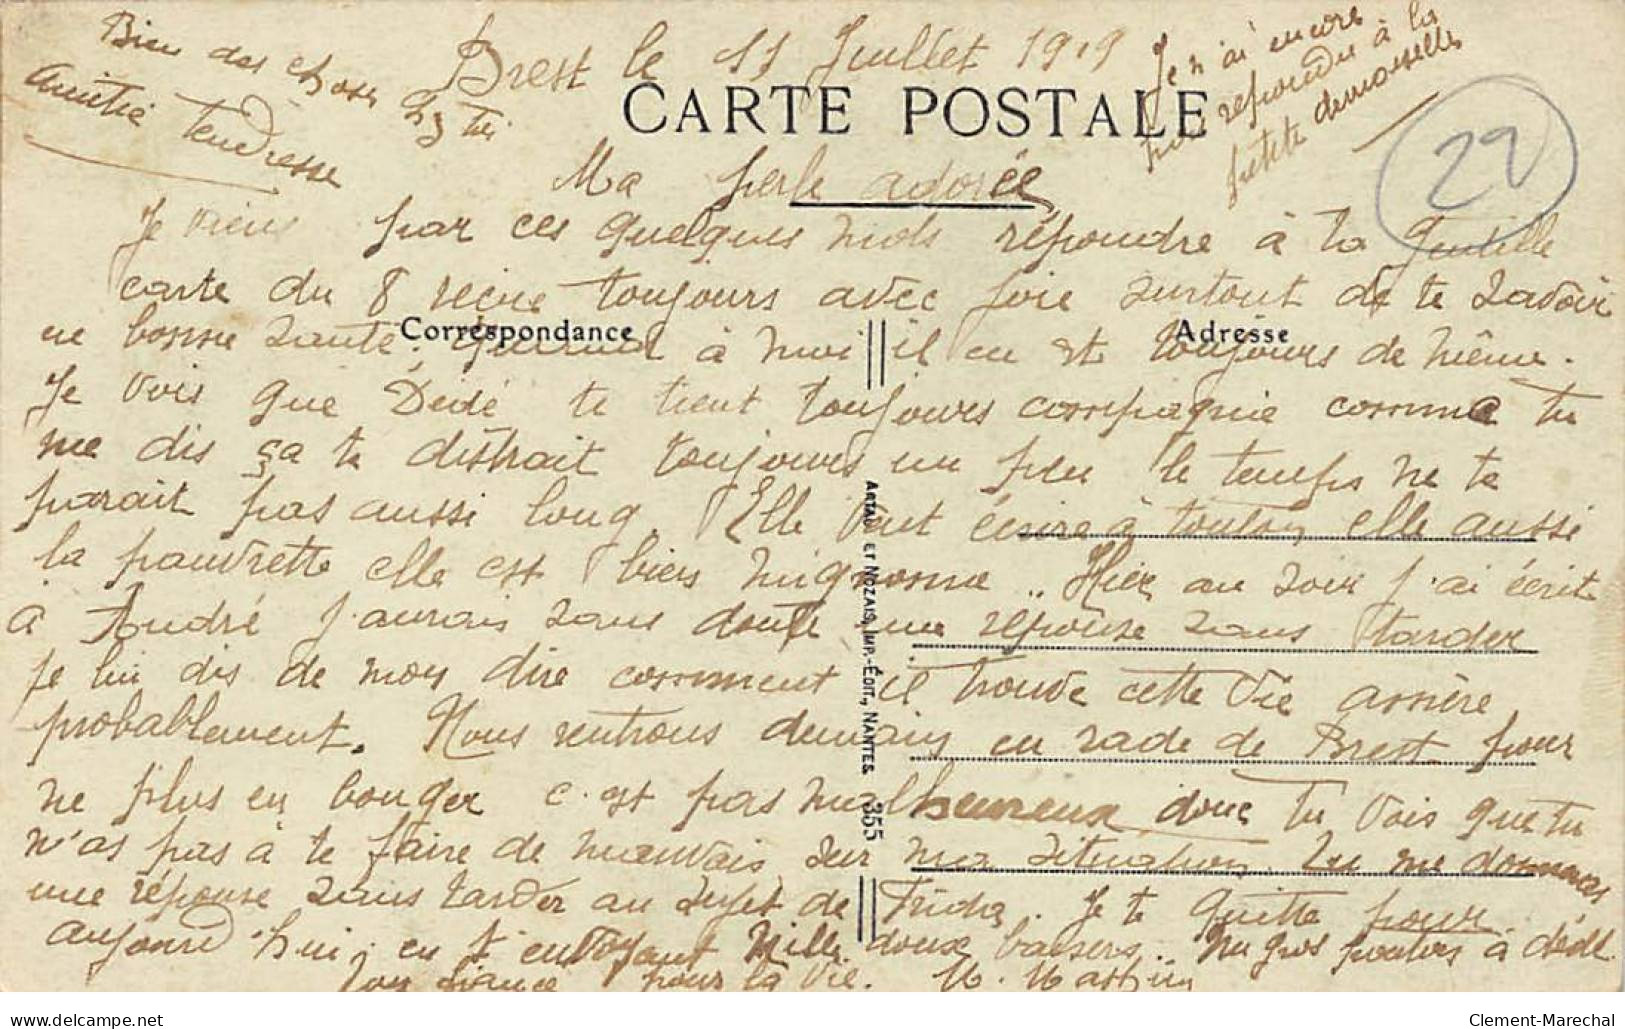 Brest le 11 Juillet 1919
CARTE POSTALE
Bien des choses chez toi
Amitié tendresse
Je n'ai encore
pas repondu à la
petite demoiselle
22
Ma perle adorée
Je viens par ces quelques mots répondre à ta gentille
carte du 8 reçue toujours avec joie surtout de te savoir
en bonne santé. quand à moi il en est toujours de même.
Correspondance
Adresse
Je vois que Dédé te tient toujours compagnie comme tu
me dis ça te distrait toujours un peu le temps ne te
parait pas aussi long. Elle veut écrire à Toulon elle aussi
la pauvrette elle est bien mignonne .. Hier au soir j'ai écrit
à André j'aurais sans doute une réponse sans tarder
je lui dis de moy dire comment il trouve cette vie arrière
probablement. Nous rentrons demain en rade de Brest pour
ne plus en bouger c'est pas malheureux donc tu vois que tu
n'as pas à te faire de mauvais sur ma situation. Tu me donneras
une réponse sans tarder au sujet de . Je te quitte pour
aujourd'hui, en t'envoyant Mille doux baisers .. un gros poutou à dédé.
Ton fiancé pour la vie. M.
ARTAUD ET NOZAIS, IMP.-ÉDIT., NANTES 355
delcampe.net
Clement-Marechal